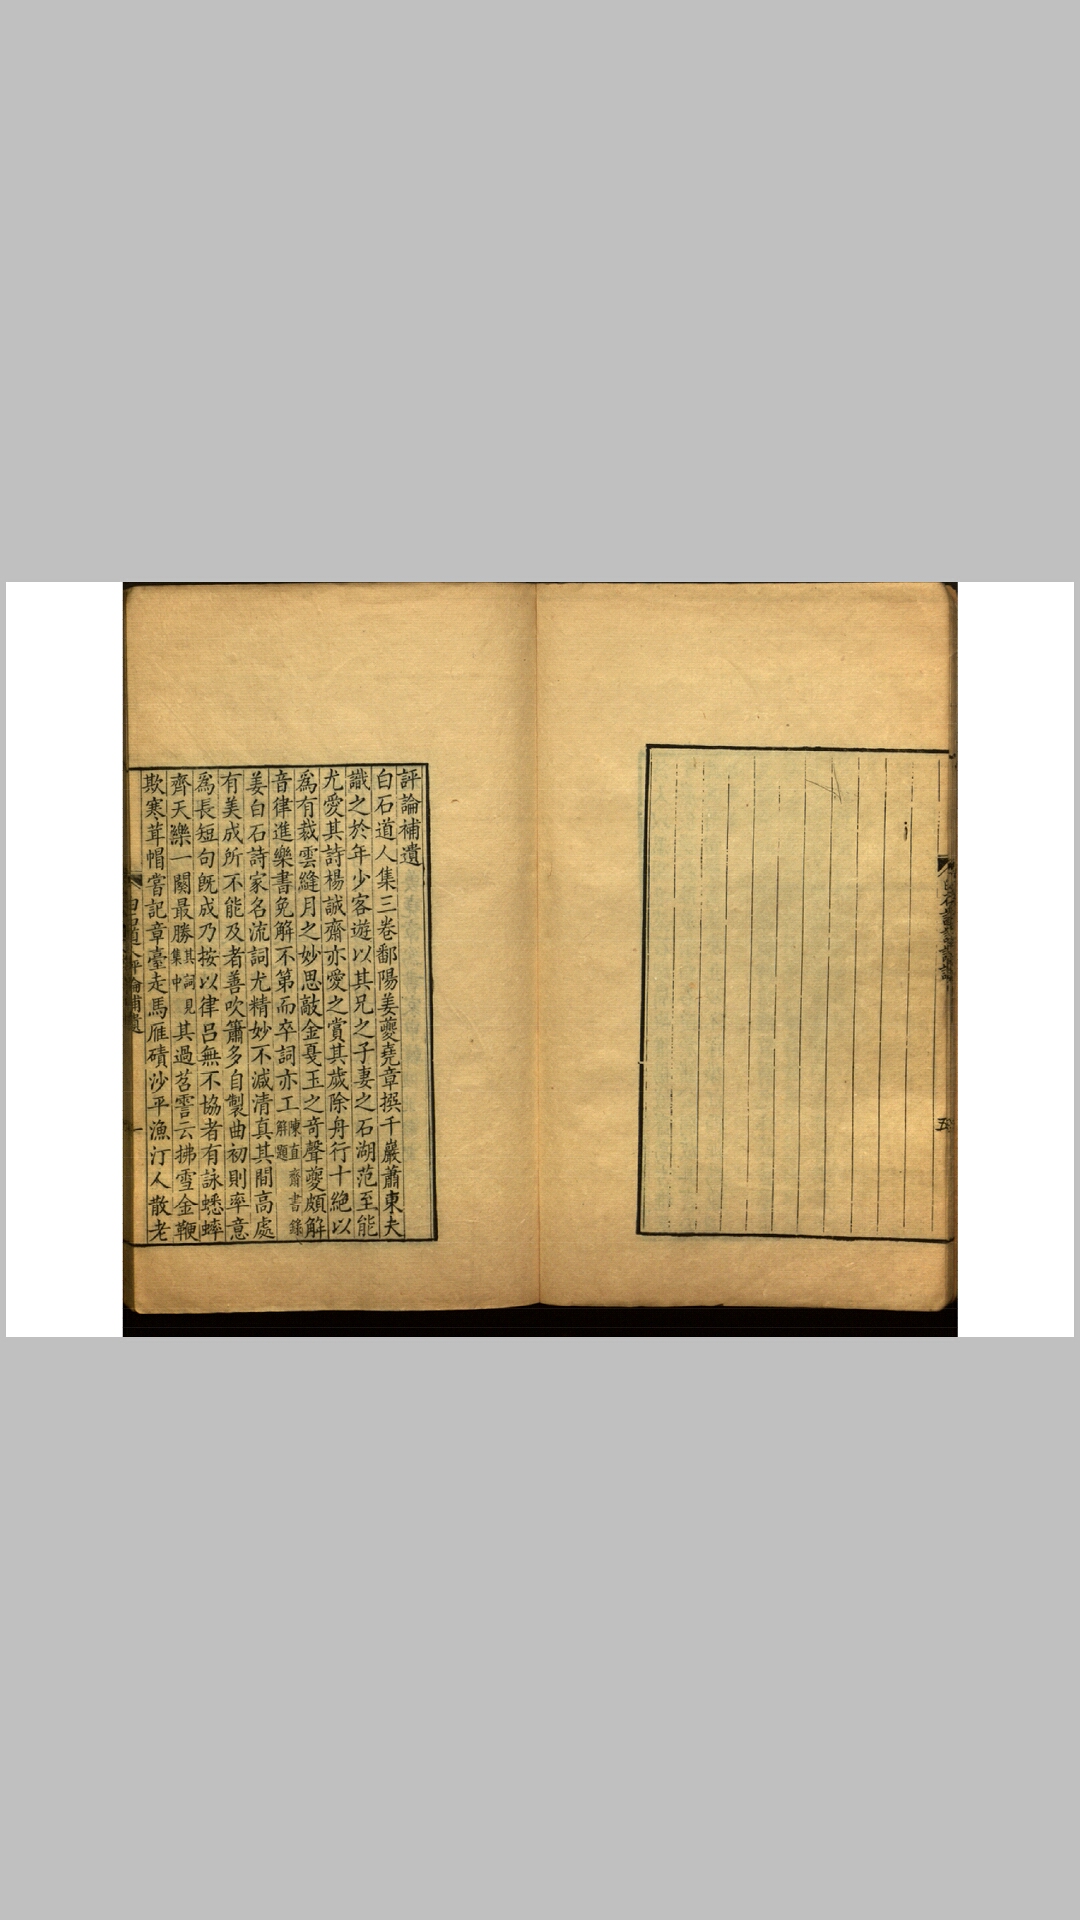 五
評論補遺
白石道人集三卷鄱陽姜夔堯章撰千巖蕭東夫
識之於年少客遊以其兄之子妻之石湖范至能
尤愛其詩楊誠齋亦愛之賞其歲除舟行十絕以
爲有裁雲縫月之妙思敲金戛玉之奇聲夔頗解
音律進樂書免解不第而卒詞亦工陳直齋書錄解題
姜白石詩家名流詞尤精妙不減清真其間高處
有美成所不能及者善吹簫多自製曲初則率意
爲長短句旣成乃按以律呂無不協者有詠蟋蟀
齊天樂一闋最勝其詞見集中其過苕霅云拂雪金鞭
欺寒茸帽嘗記章臺走馬雁磧沙平漁汀人散老
白石道人評論補遺
一